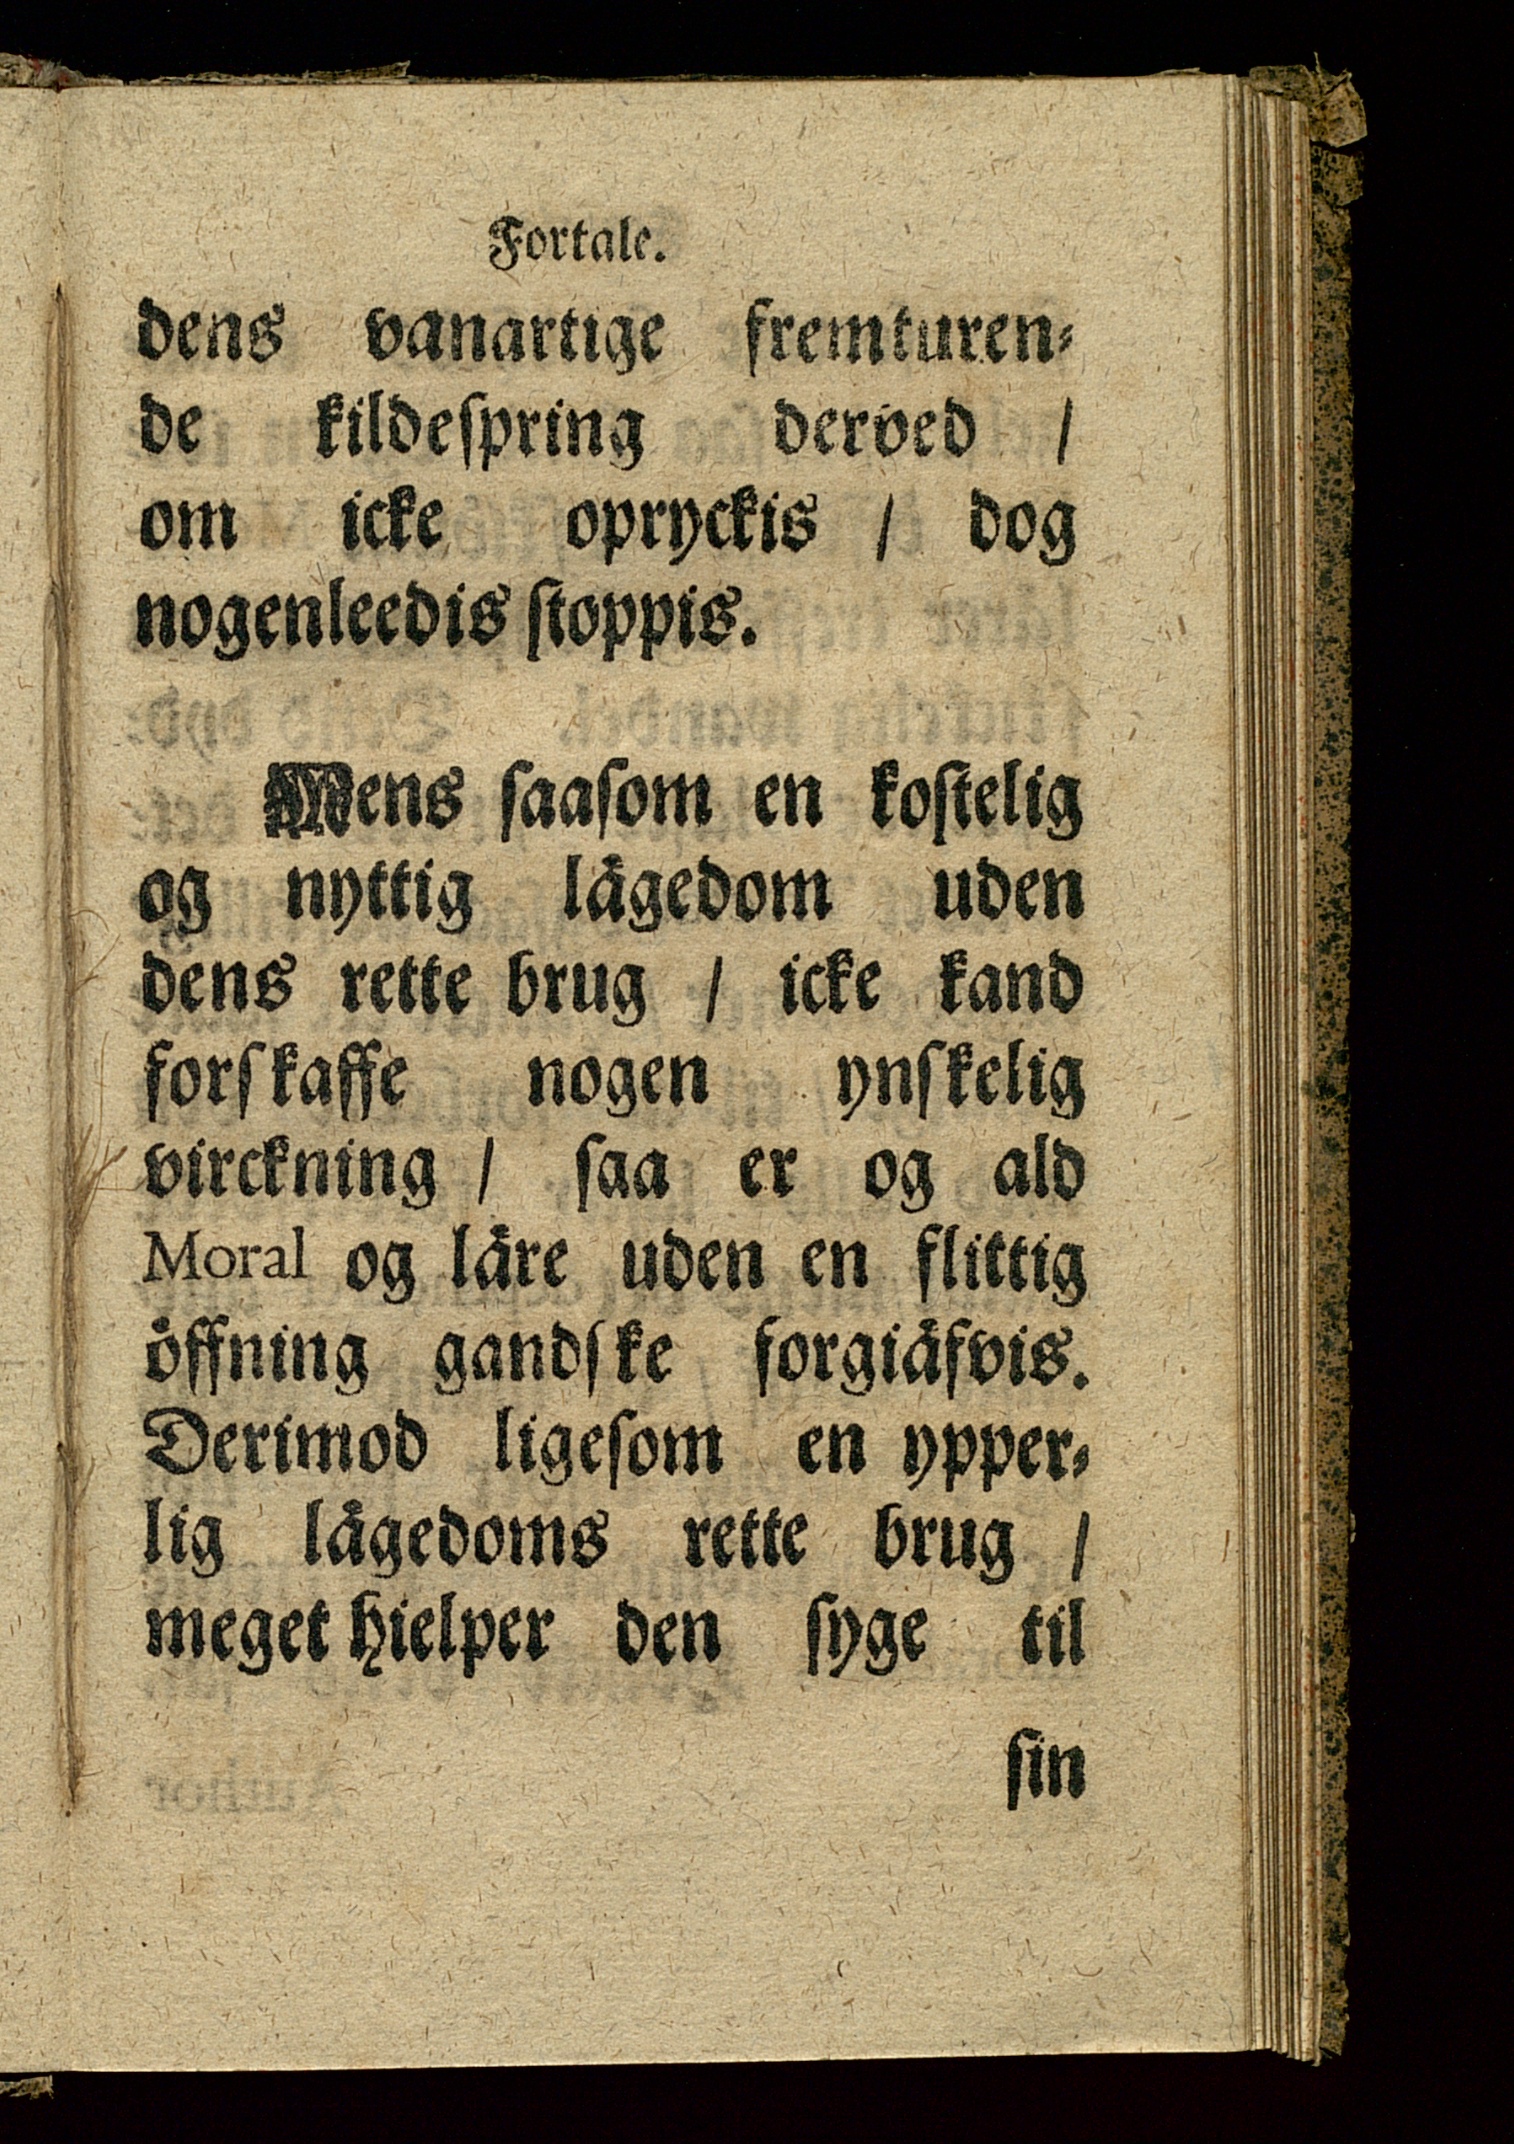 Fortale.
dens vanartige fremturen⸗
de kildeſpring derved /
om icke opryckis / dog
nogenleedis ſtoppis.
Mens ſaaſom en koſtelig
og nyttig lågedom uden
dens rette brug / icke kand
forſkaffe nogen ynſkelig
virckning / ſaa er og ald
Moral og låre uden en flittig
öffning gandſke forgiåfvis.
Derimod ligeſom en ypper⸗
lig lågedoms rette brug /
meget hielper den ſyge til
ſin